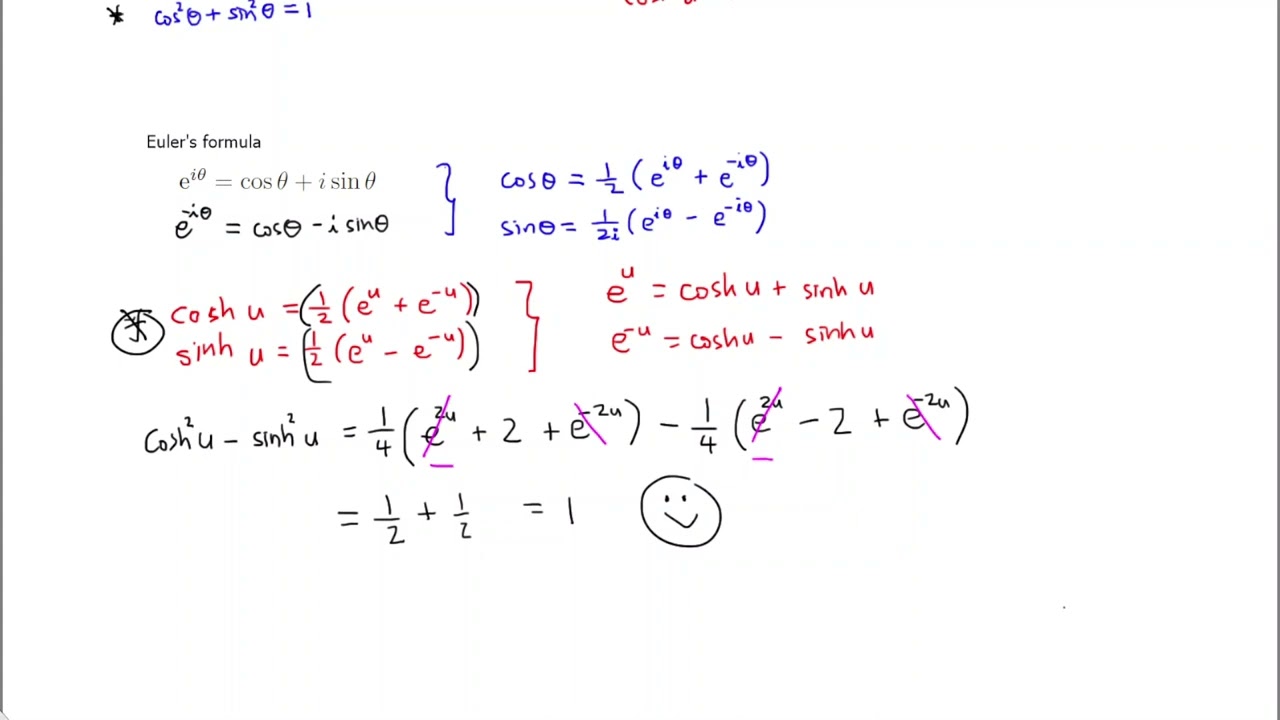 * cos²θ + sin²θ = 1
Euler's formula
e^{iθ} = cos θ + i sin θ
e^{-iθ} = cosθ - i sinθ
cosθ = 1/2 (e^{iθ} + e^{-iθ})
sinθ = 1/2i (e^{iθ} - e^{-iθ})
* cosh u = (1/2 (e^u + e^{-u}))
sinh u = (1/2 (e^u - e^{-u}))
e^u = cosh u + sinh u
e^{-u} = cosh u - sinh u
cosh²u - sinh²u = 1/4 (e^{2u} + 2 + e^{-2u}) - 1/4 (e^{2u} - 2 + e^{-2u})
= 1/2 + 1/2 = 1